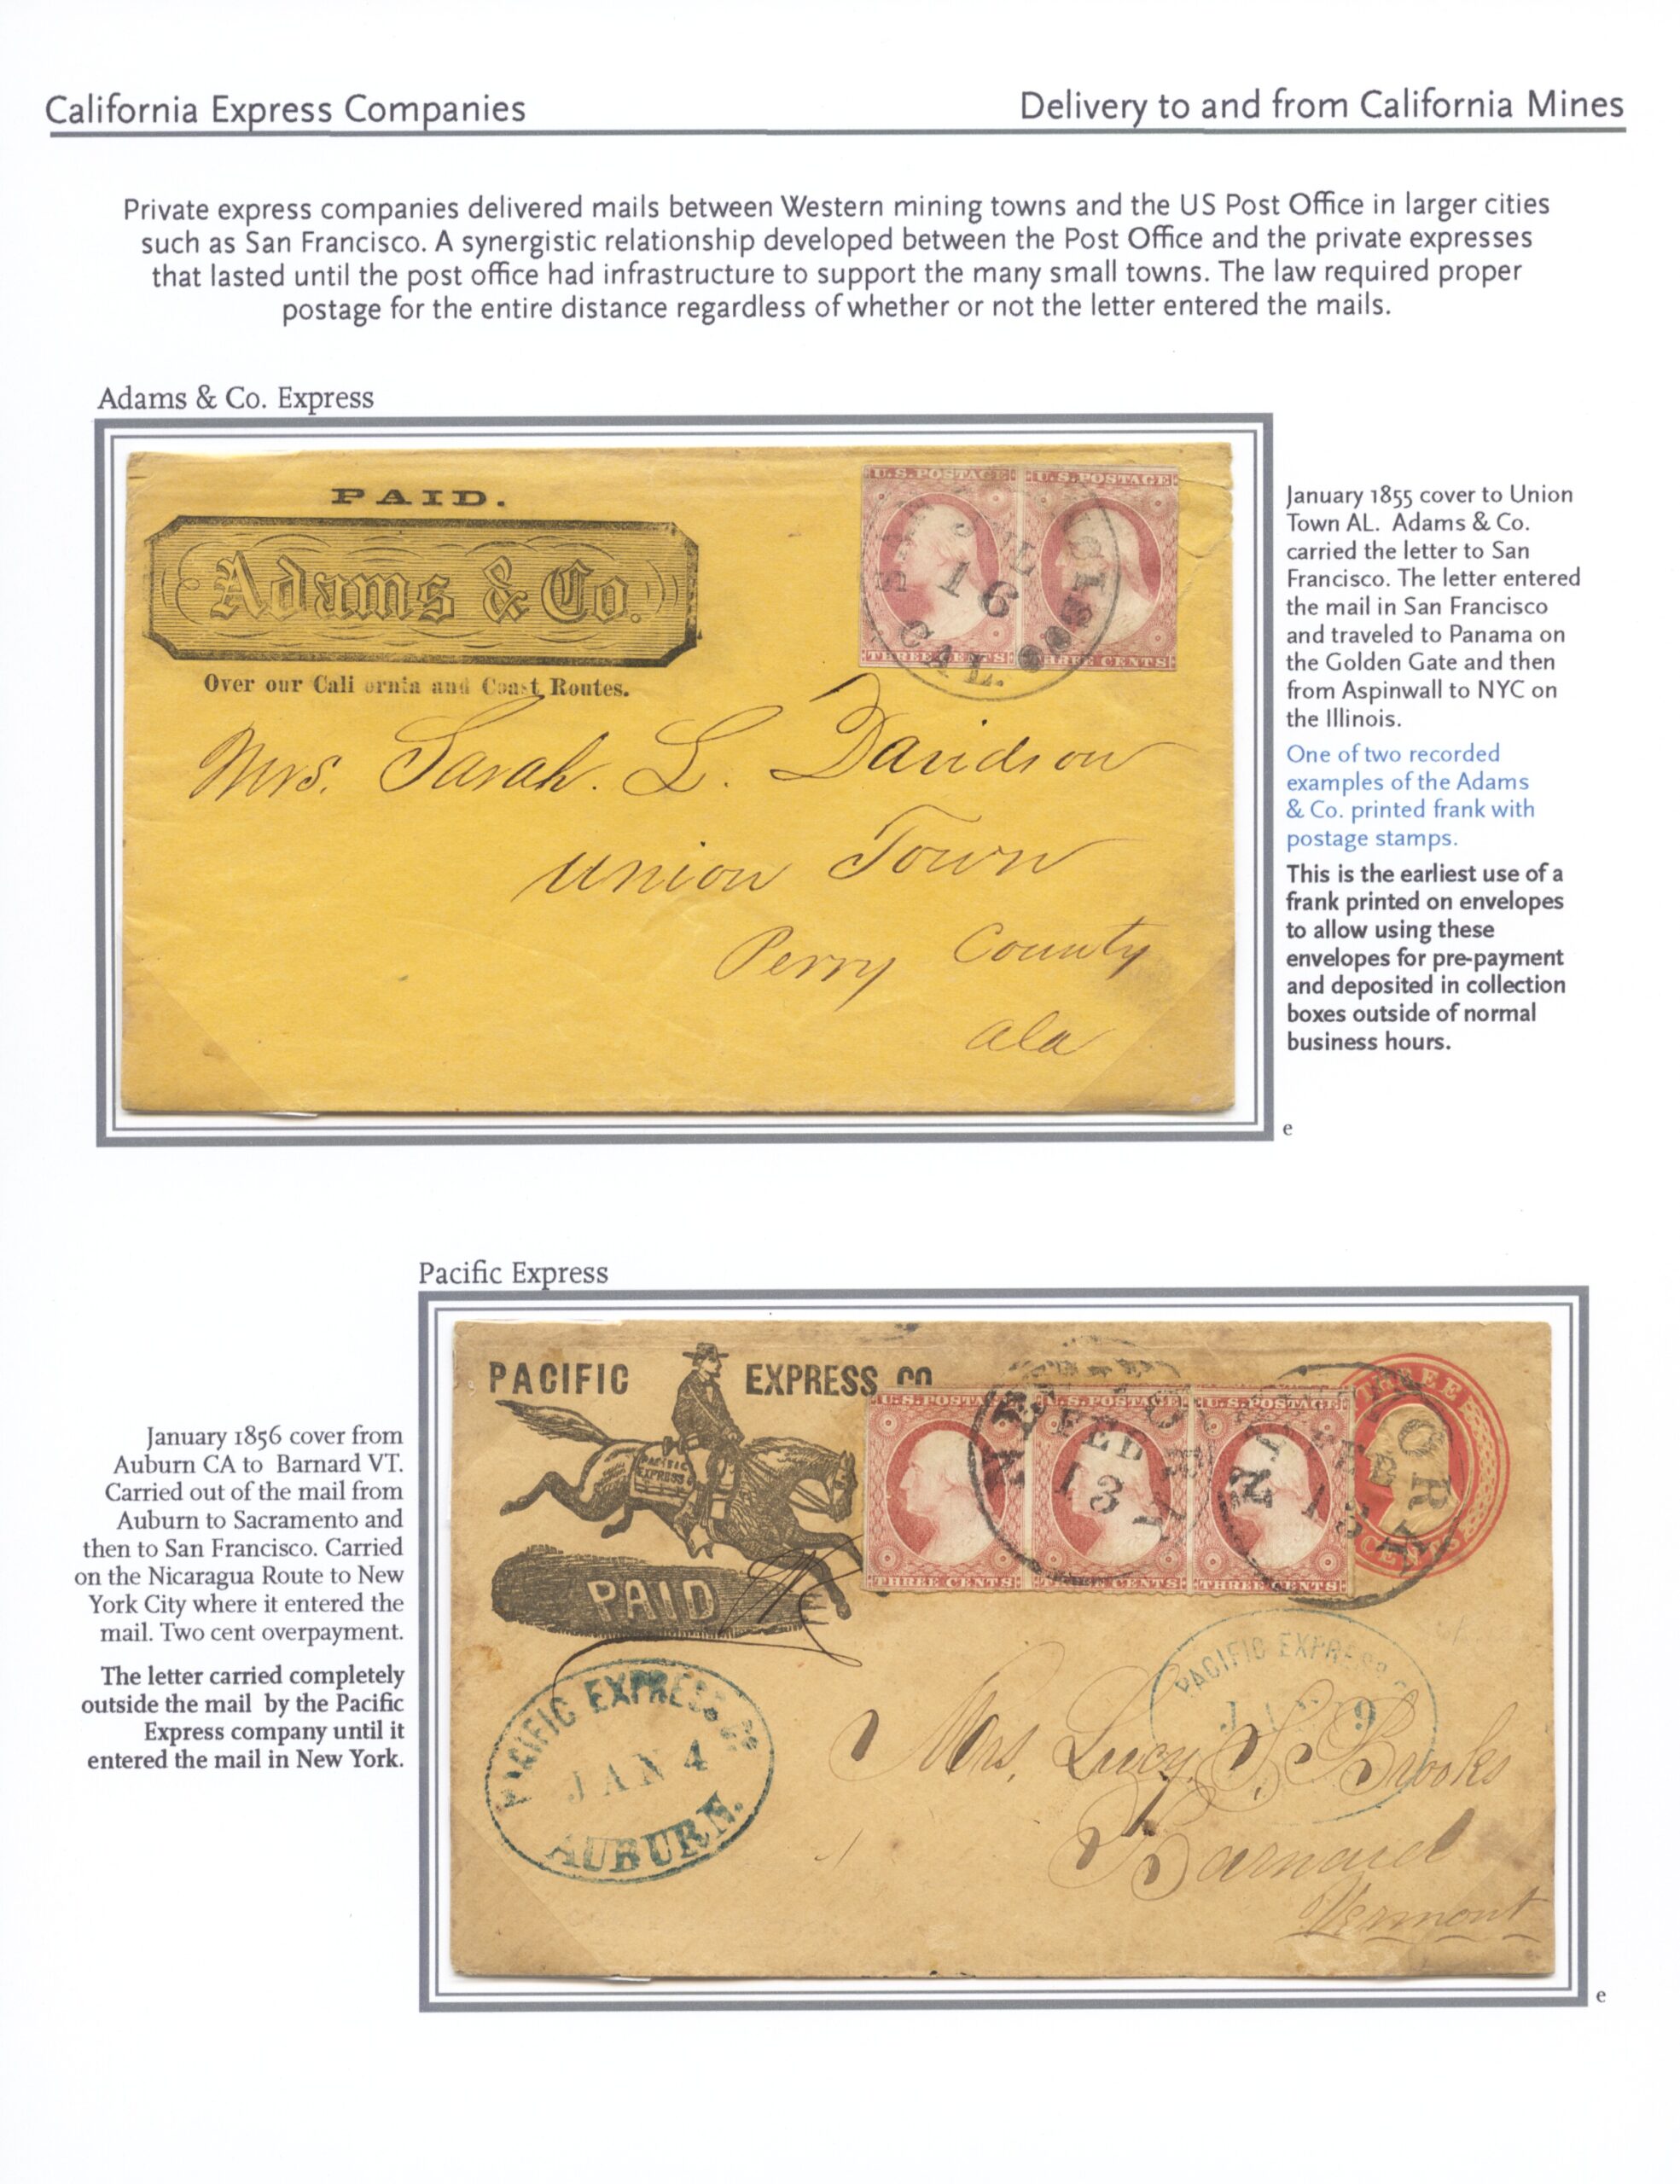 California Express Companies
Delivery to and from California Mines
Private express companies delivered mails between Western mining towns and the US Post Office in larger cities
such as San Francisco. A synergistic relationship developed between the Post Office and the private expresses
that lasted until the post office had infrastructure to support the many small towns. The law required proper
postage for the entire distance regardless of whether or not the letter entered the mails.
Adams & Co. Express
PAID.
Adams & Co.
Over our Cali ornia and Coast Routes.
U.S. POSTAGE
THREE CENTS
U.S. POSTAGE
THREE CENTS
16
CAL.
Mrs. Sarah. L. Davidson
Union Town
Perry County
Ala
January 1855 cover to Union
Town AL. Adams & Co.
carried the letter to San
Francisco. The letter entered
the mail in San Francisco
and traveled to Panama on
the Golden Gate and then
from Aspinwall to NYC on
the Illinois.
One of two recorded
examples of the Adams
& Co. printed frank with
postage stamps.
This is the earliest use of a
frank printed on envelopes
to allow using these
envelopes for pre-payment
and deposited in collection
boxes outside of normal
business hours.
e
Pacific Express
January 1856 cover from
Auburn CA to Barnard VT.
Carried out of the mail from
Auburn to Sacramento and
then to San Francisco. Carried
on the Nicaragua Route to New
York City where it entered the
mail. Two cent overpayment.
The letter carried completely
outside the mail by the Pacific
Express company until it
entered the mail in New York.
PACIFIC EXPRESS CO
PACIFIC
EXPRESS
PAID
U.S. POSTAGE
THREE CENTS
U.S. POSTAGE
THREE CENTS
U.S. POSTAGE
THREE CENTS
FEB
13
PACIFIC EXPRESS Co
JAN 4
AUBURN.
PACIFIC EXPRESS
9
Mrs. Lucy S. Brooks
Barnard
Vermont
e